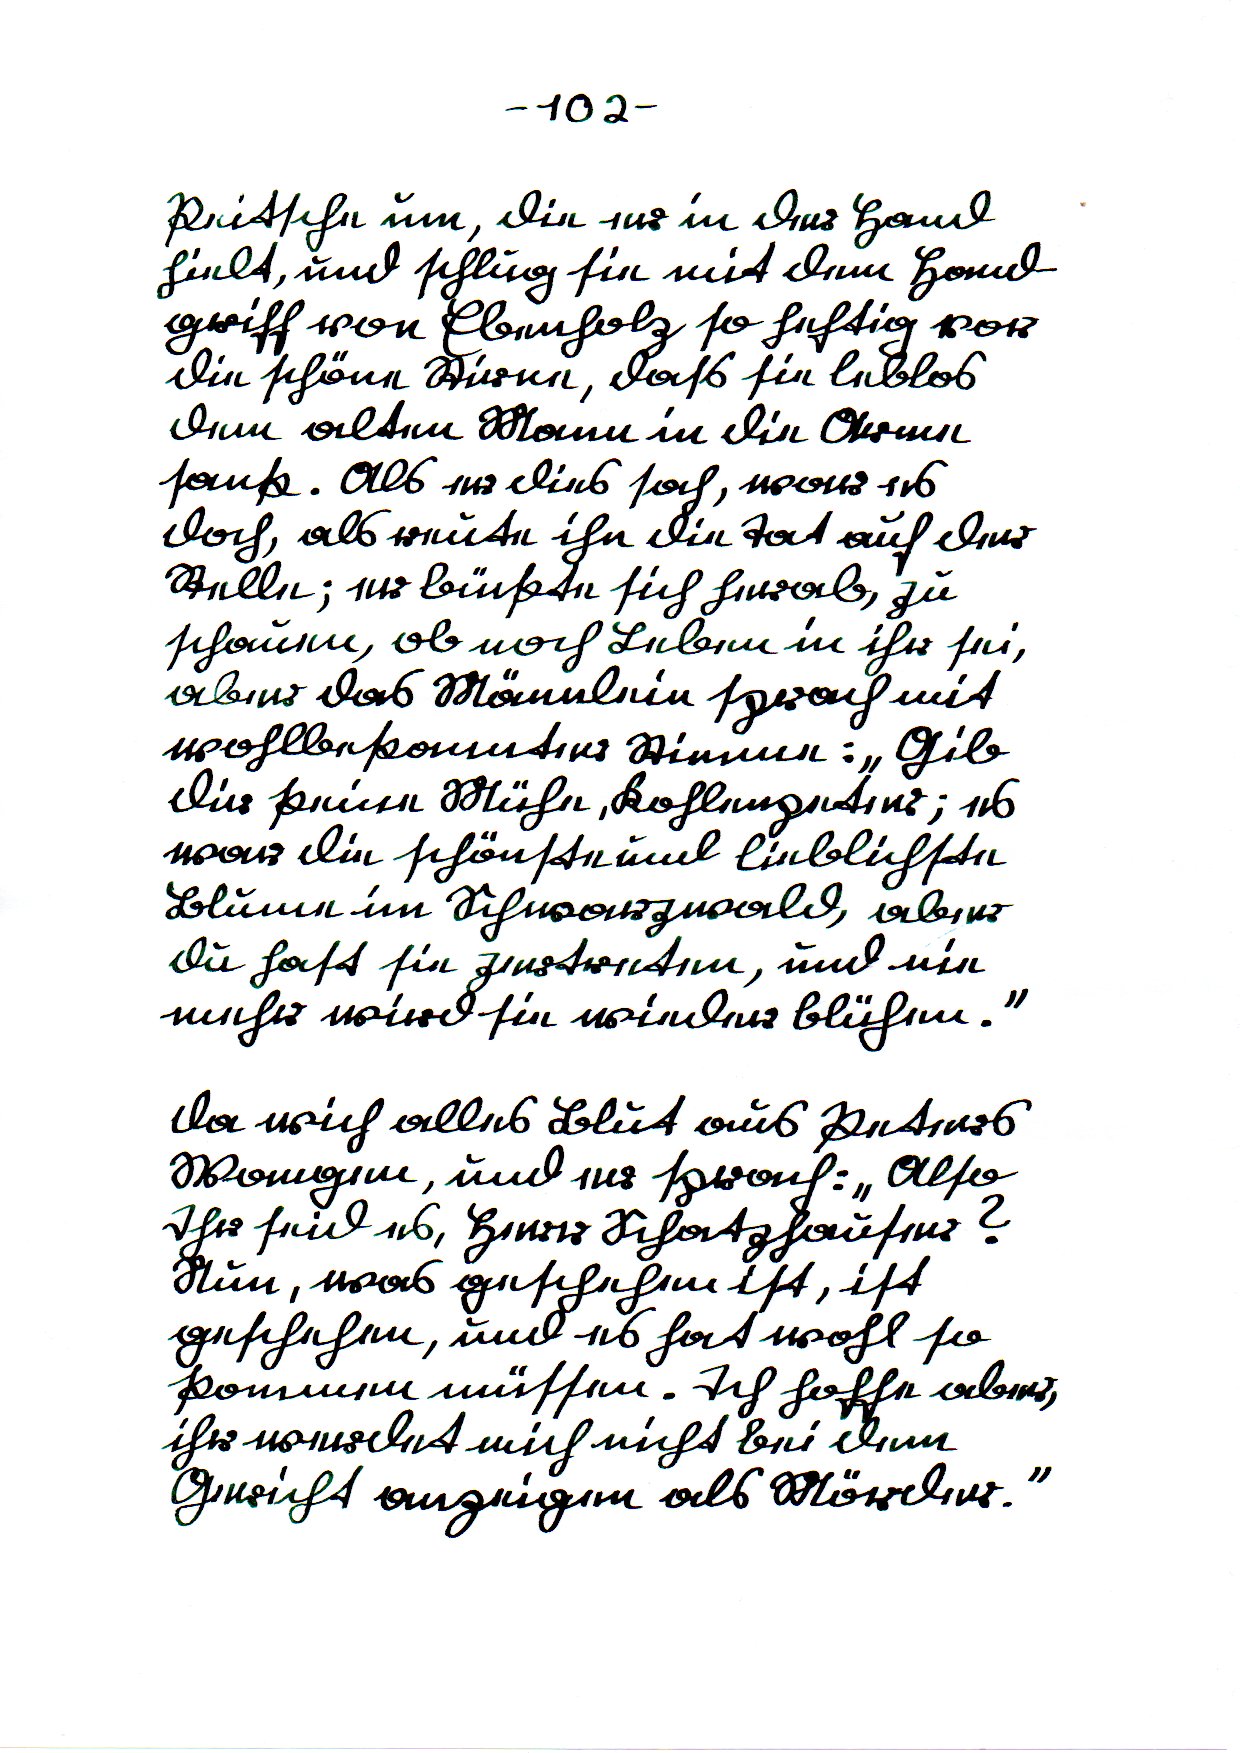 -102-
Peitsche um, die er in der Hand
hielt, und schlug sie mit dem Hand-
griff von Ebenholz so heftig vor
die schöne Stirne, daß sie leblos
dem alten Mann in die Arme
sank. Als er dies sah, war es
doch, als reute ihn die Tat auf der
Stelle; er bückte sich herab, zu
schauen, ob noch Leben in ihr sei,
aber das Männlein sprach mit
wohlbekannter Stimme: „Gib
dir keine Mühe, Kohlenpeter; es
war die schönste und lieblichste
Blume im Schwarzwald, aber
du hast sie zertreten, und nie
mehr wird sie wieder blühen."
Da wich alles Blut aus Peters
Wangen, und er sprach: „Also
Ihr seid es, Herr Schatzhauser?
Nun, was geschehen ist, ist
geschehen, und es hat wohl so
kommen müssen. Ich hoffe aber,
ihr werdet mich nicht bei dem
Gericht anzeigen als Mörder."